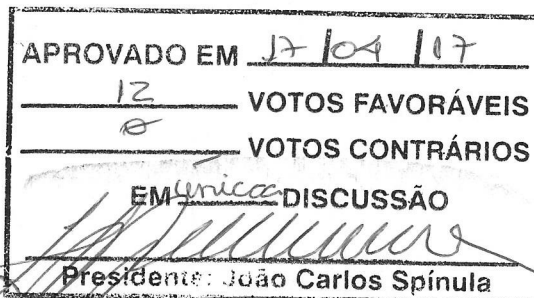 APROVADO EM 17/04/17
12 VOTOS FAVORÁVEIS
0 VOTOS CONTRÁRIOS
EM única DISCUSSÃO
Presidente: João Carlos Spínula